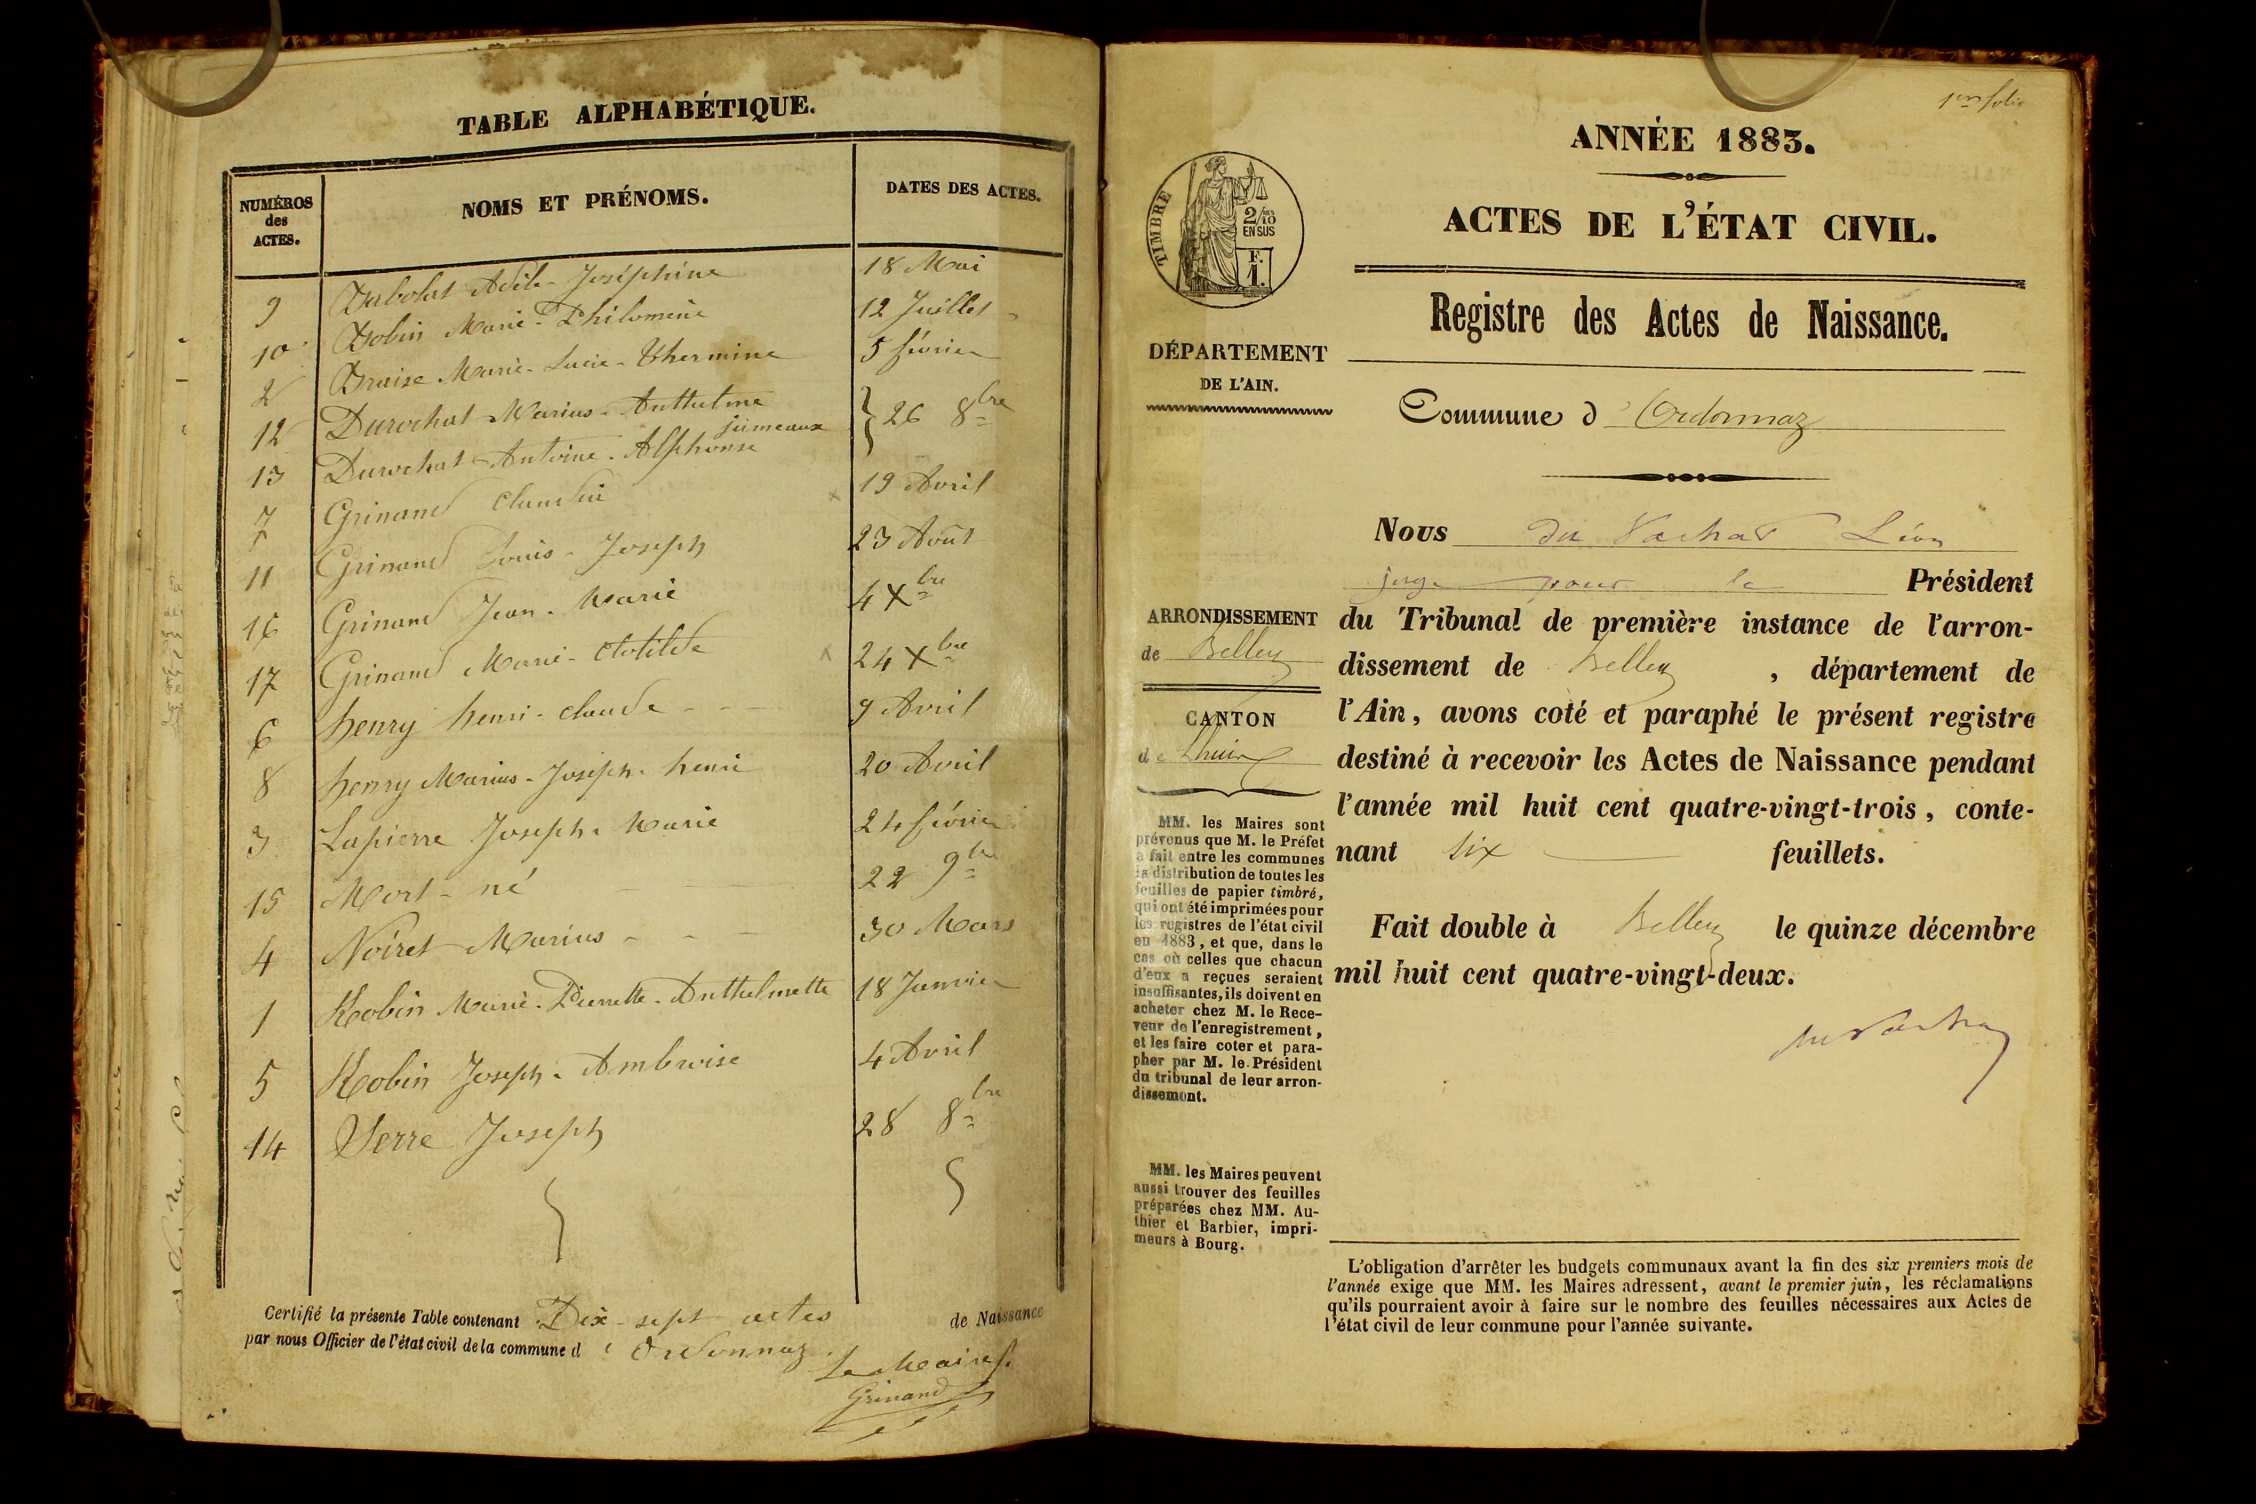 TABLE ALPHABÉTIQUE.
NUMÉROS des ACTES. NOMS ET PRÉNOMS. DATES DES ACTES.
9 Adèle-Joséphine 18 Mai
10 Bobin Marie-Philomène 12 Juillet
2 Braise Marie-Lucie-Thermine 5 février
12 Durochat Marius-Anthelme 26 8bre
jumeaux
13 Durochat Antoine-Alphonse
7 Grinand Claudin 19 Avril
11 Grinand Louis-Joseph 23 Août
16 Grinand Jean-Marie 4 Xbre
17 Grinand Marie-Clotilde 24 Xbre
6 henry henri-claude 9 Avril
8 henry Marius-Joseph-henri 20 Avril
3 Lapierre Joseph-Marie 24 février
15 Mort-né 22 9bre
4 Noiret Marius 30 Mars
1 Robin Marie-Pierrette-Anthelmette 18 Janvier
5 Robin Joseph-Ambroise 4 Avril
14 Serre Joseph 28 8bre
Certifié la présente Table contenant Dix-sept actes de Naissance
par nous Officier de l'état civil de la commune d' Ordonnaz.
Le Maire
Grinand
1er folio
ANNÉE 1883.
ACTES DE L'ÉTAT CIVIL.
TIMBRE
2/10es
EN SUS
F.
1.
Registre des Actes de Naissance.
DÉPARTEMENT
DE L'AIN.
Commune d'Ordonnaz
Nous du Vachat Léon
juge pour le Président
du Tribunal de première instance de l'arron-
dissement de Belley, département de
l'Ain, avons coté et paraphé le présent registre
destiné à recevoir les Actes de Naissance pendant
l'année mil huit cent quatre-vingt-trois, conte-
nant six feuillets.
Fait double à Belley le quinze décembre
mil huit cent quatre-vingt-deux.
du Vachat
ARRONDISSEMENT
de Belley
CANTON
de Lhuis
MM. les Maires sont
prévenus que M. le Préfet
a fait entre les communes
la distribution de toutes les
feuilles de papier timbré,
qui ont été imprimées pour
les registres de l'état civil
en 1883, et que, dans le
cas où celles que chacun
d'eux a reçues seraient
insuffisantes, ils doivent en
acheter chez M. le Rece-
veur de l'enregistrement,
et les faire coter et para-
pher par M. le Président
du tribunal de leur arron-
dissement.
MM. les Maires peuvent
aussi trouver des feuilles
préparées chez MM. Au-
thier et Barbier, impri-
meurs à Bourg.
L'obligation d'arrêter les budgets communaux avant la fin des six premiers mois de
l'année exige que MM. les Maires adressent, avant le premier juin, les réclamations
qu'ils pourraient avoir à faire sur le nombre des feuilles nécessaires aux Actes de
l'état civil de leur commune pour l'année suivante.